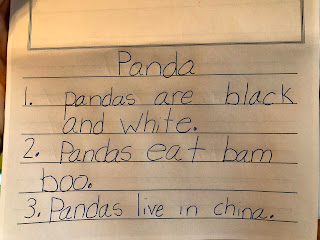 Panda
1. pandas are black
and white.
2. Pandas eat bam
boo.
3. Pandas live in china.